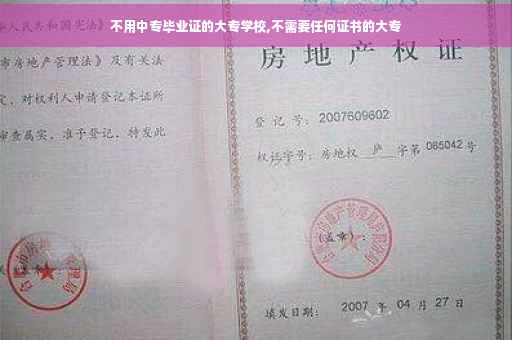 不用中专毕业证的大专学校,不需要任何证书的大专
华人民共和国宪法》
市房地产管理法》及有关法
定,对权利人申请登记本证所
审查属实,准予登记,特发此
房地产权证
登记号：2007609602
权证字号：房地权 庐 字第 065042 号
(盖章)：
填发日期：2007 年 04 月 27 日